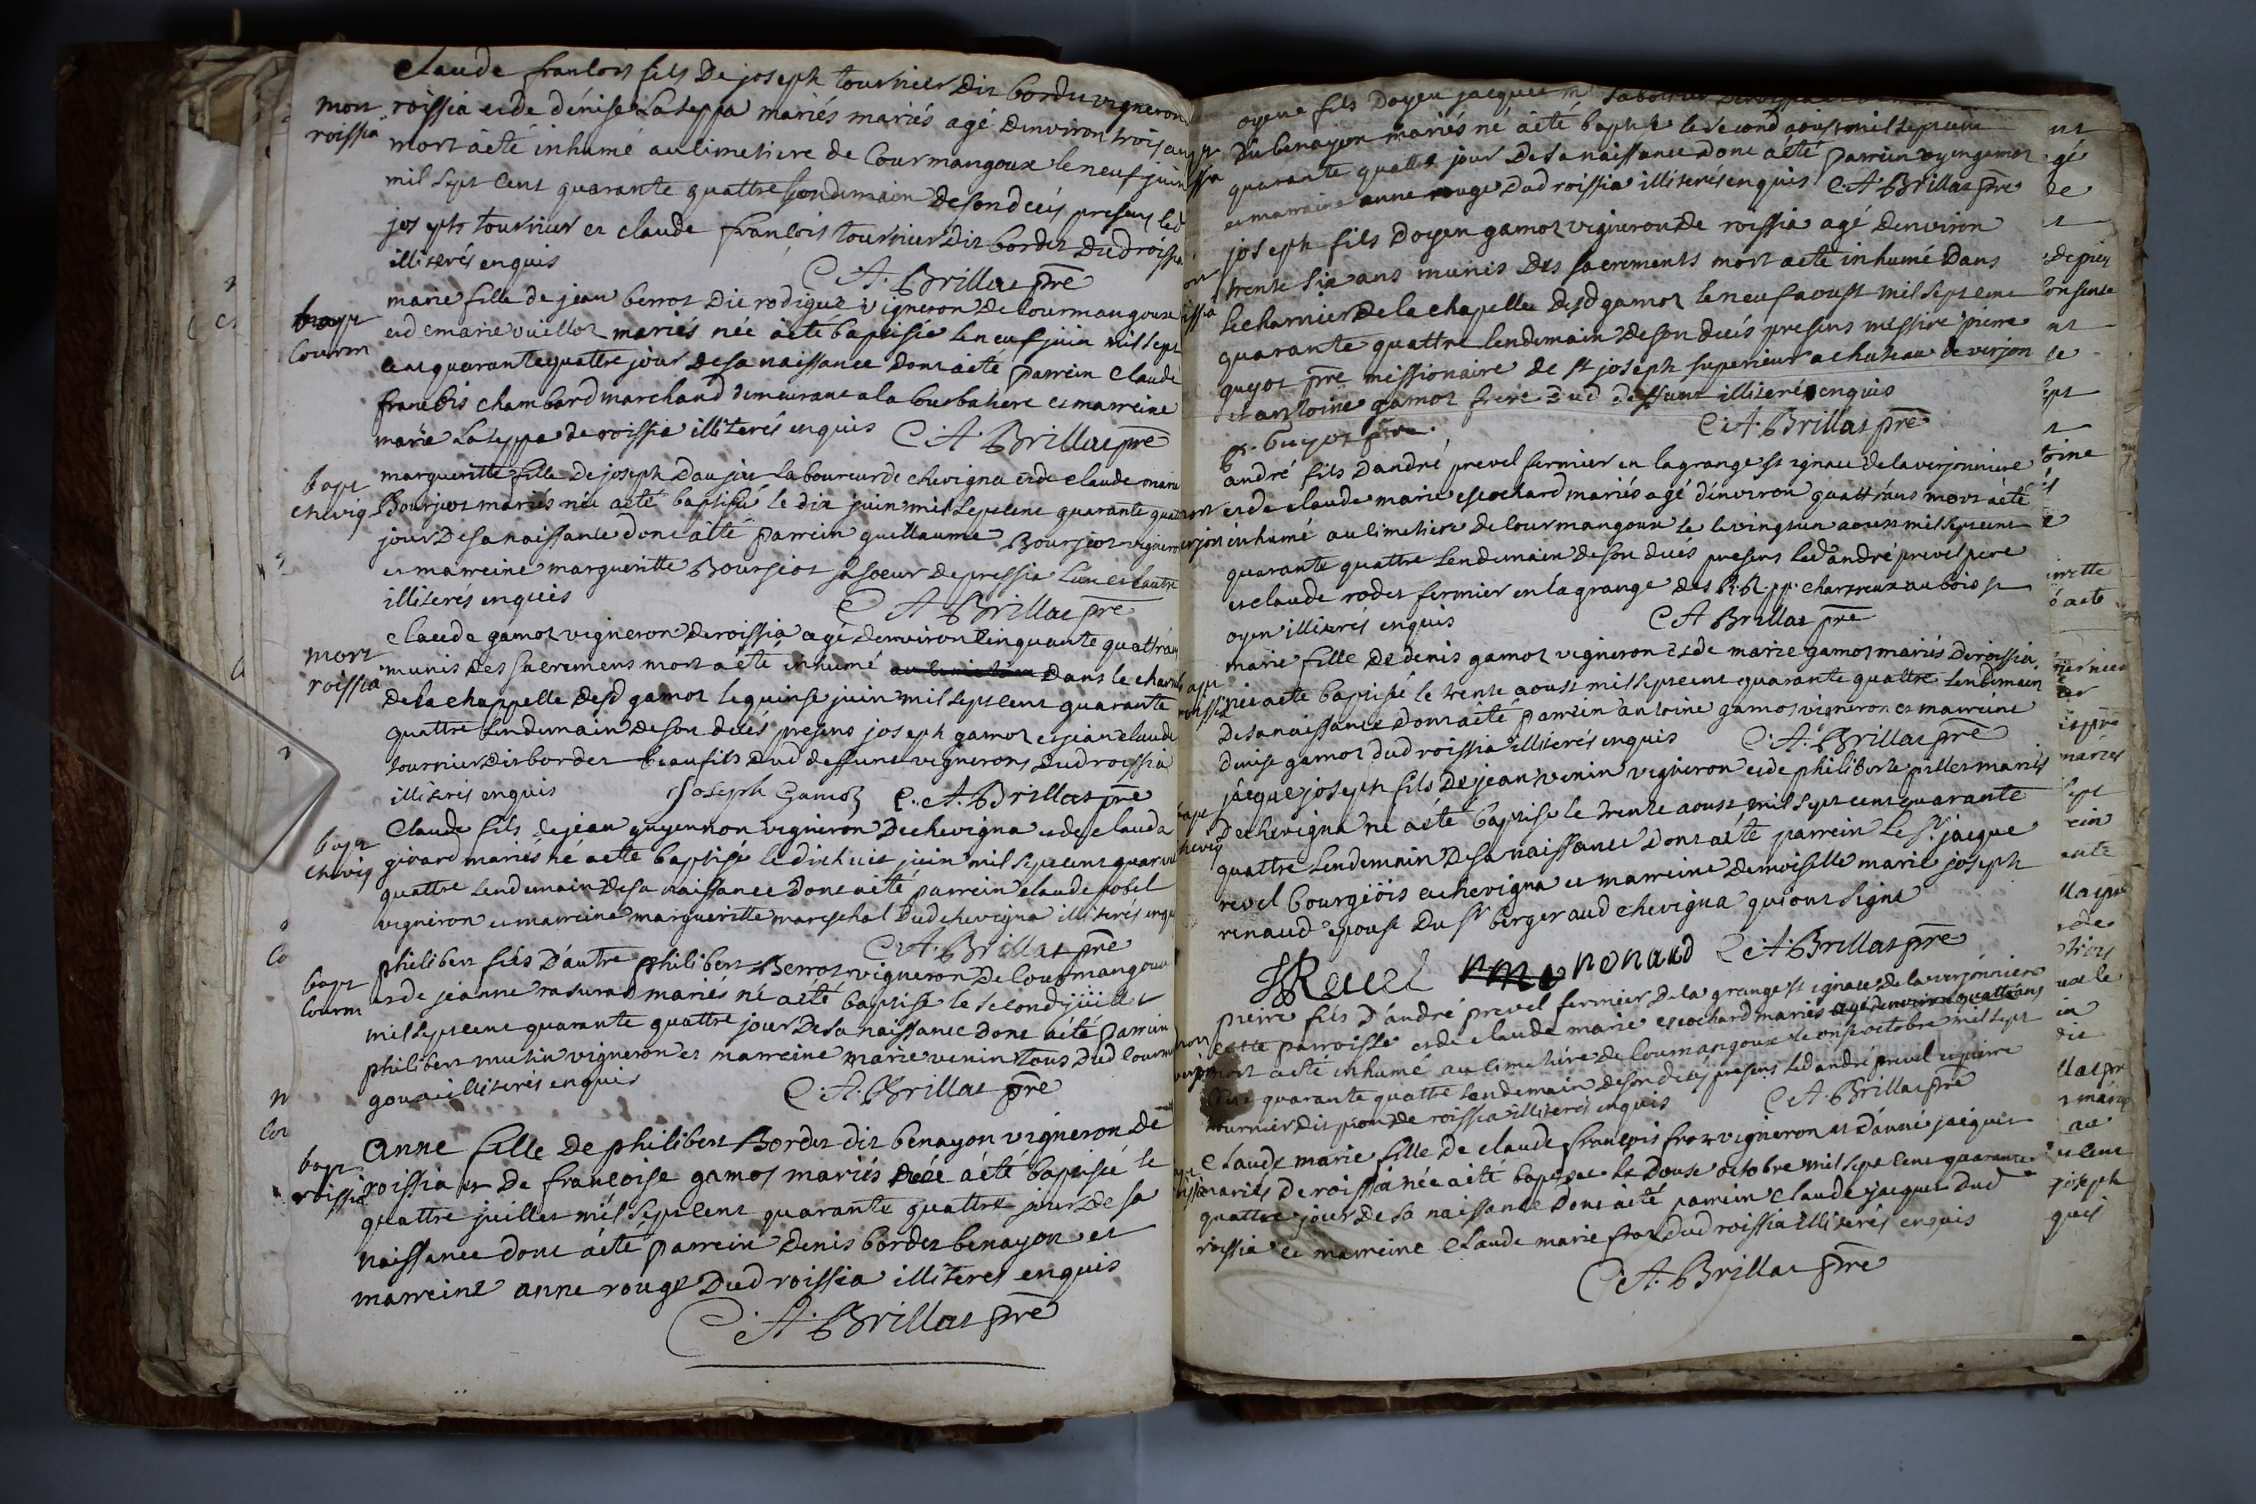 Claude francois fils De joseph tournier Dit bordet vigneron
mort
roissia
roissia et de dénise Lateppa mariés mariés agé Denviron trois ans
mort àcté inhumé au cimetiere de Courmangoux le neuf juin
mil sept Cent quarante quattre Lendemain De son decés presens led
joseph tournier et claude francois tournier Dit bordet Dud roissia
illiterés enquis
C. A. Brillat pre
bapt
Courm
marie fille de jean berrot Dit rodiguet vigneron De Courmangoux
et de marie vuillot mariés née àcté baptisée le neuf juin mil sept
cent quarante quattre jour De sa naissance dont àcté parrein Claude
francois chambard marchand demeurant a la et marreine
marie Lateppa de roissia illiterés enquis C. A. Brillat pre
bapt
chevig
margueritte fille De joseph Daujat Laboureur de chevigna et de claude marie
Bourjot mariés née àcté baptisée le dix juin mil sept cent quarante quattre
jour De sa naissance dont àcté parrein guillaume Bourjeot vigneron
et marreine margueritte Bourgeot sa soeur De pressia Lun et Lautre
illiterés enquis
C. A. Brillat pre
mort
roissia
Claude gamot vigneron De roissia agé Denviron Cinquante quattr'ans
munis Des sacremens mort àcté inhumé au cimetiere Dans le charnier
De la chappelle Desd gamot le quinse juin mil sept cent quarante
quattre Lendemain De son decés presens joseph gamot et jean claude
tournier Dit bordet beaufils Dud deffunt vignerons Dud roissia
illiterés enquis joseph Gamot C. A. Brillat pre
bapt
chevig
Claude fils De jean guyennon vigneron De chevigna et de clauda
girard mariés né àcté baptisé le dixhuit juin mil sept cent quarante
quattre Lendemain De sa naissance Dont àcté parrein claude nobel
vigneron et marreine margueritte mareschal Dud chevigna illiterés enquis
C. A. Brillat pre
bapt
Courm
philibert fils D'autre philibert Berrot vigneron De Courmangoux
et de jeanne rasurat mariés né àcté baptisé le second juillet
mil sept cent quarante quattre jour De sa naissance dont àcté parrein
philibert mutin vigneron et marreine marie venin tous Dud Courman
goux illiterés enquis
C. A. Brillat pre
bapt
roissia
Anne fille De philibert Bordet dit benayon vigneron De
roissia et De francoise gamot mariés née àcté baptisée le
quattre juillet mil sept cent quarante quattre jour De sa
naissance dont àcté parrein Denis bordet benayon et
marreine anne rouge Dud roissia illiterés enquis
C. A. Brillat pre
oyene fils Doyen jacquet
Du benayon mariés né àcté baptisé le second aoust mil sept cent
quarante quattre jour De sa naissance Dont àcté parrein oyen gamot
et marreine anne rouge Dud roissia illiterés enquis C. A. Brillat pre
joseph fils Doyen gamot vigneron De roissia agé Denviron
trente six ans munis Des sacrements mort àcté inhumé Dans
le charnier De la chapelle Desd gamot le neuf aoust mil sept cent
quarante quattre Lendemain De son decés presens messire pierre
guyot pre missionaire De st joseph superieur a chateau de verjon
et antoine gamot frere Dud Deffunt illiteré enquis
C. A. Brillat pre
p. Guyot pre
andré fils Dandré prevel fermier en la grange st ignace de la verjonniere
et de claude marie escochard mariés agé Denviron quattr'ans mort àcté
inhumé au cimetiere De Courmangoux le le vingtun aoust mil sept cent
quarante quattre Lendemain De son decés presens led andré prevel pere
et claude rodet fermier en la grange Des R.R. pp. chartreux au bois st
oyen illiterés enquis
C. A. Brillat pre
marie fille De denis gamot vigneron et de marie gamot mariés De roissia
née àcté baptisée le trente aoust mil sept cent quarante quattre Lendemain
De sa naissance Dont àcté parrein antoine gamot vigneron et marreine
Denise gamot dud roissia illiterés enquis C. A. Brillat pre
jacque joseph fils De jean venin vigneron et de philiberte pillet mariés
De chevigna né àcté baptisé le trente aoust mil sept cent quarante
quattre Lendemain De sa naissance Dont àcté parrein Le sr. jacque
revel bourgeois a chevigna et marreine Demoiselle marie joseph
renaud epouse Du sr berger aud chevigna qui ont signé
J Revel renaud C. A. Brillat pre
pierre fils D'andré prevel fermier De la grange st ignace De la verjonniere
cette parroisse et de claude marie escochard mariés agé denviron quattr'ans
mort àcté inhumé au cimetiere De Courmangoux le onse octobre mil sept
cent quarante quattre Lendemain De son decés presens led andré prevel et pierre
tournier Dit pion De roissia illiterés enquis
C. A. Brillat pre
Claude marie fille De claude francois froz vigneron et D'anne jacquet
mariés De roissia née àcté baptisée le Douse octobre mil sept cent quarante
quattre jour De sa naissance Dont àcté parrein claude jacquet Dud
roissia et marreine Claude marie froz Dud roissia illiterés enquis
C. A. Brillat pre